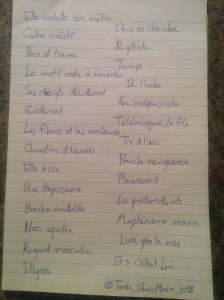 Elle son métier
Cadre créatif
Bois et trame
Le motif reste à inventer
Ses doigts décideront
Guideront
Les fibres et les couleurs
Question d'heures
Elle tisse
Une tapisserie
Barbe ondulée
Nez aquilin
Regard masculin
Ulysse
Dans sa chambre
Nuptiale
Temps
De l'aube
Au crépuscule
Télémaque, le fils
Tir à l'arc
Pour la vengeance
Les prétendants
Mystérieux marin
Livré par la mer
Et si c'était lui...
© Denis Morin, 2018